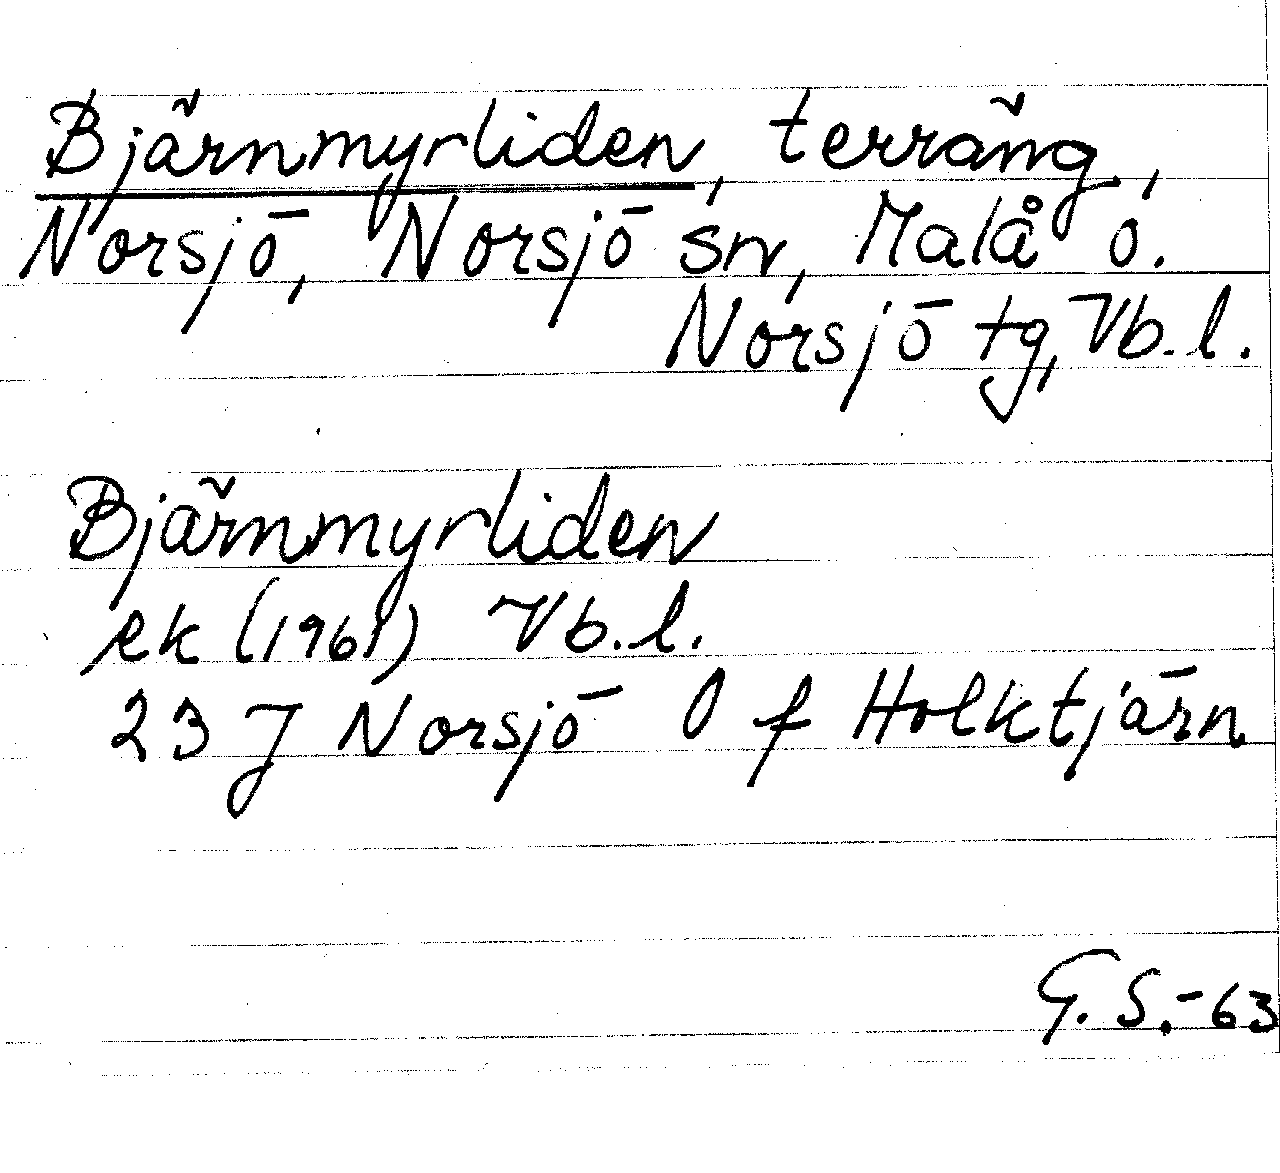 Bjärnmyrliden, terräng,
Norsjö, Norsjö sn, Malå o.
Norsjö tg, Vb. l.
Bjärnmyrliden
ek (1961) Vb. l.
23 J Norsjö O f Holktjärn
G. S. - 63